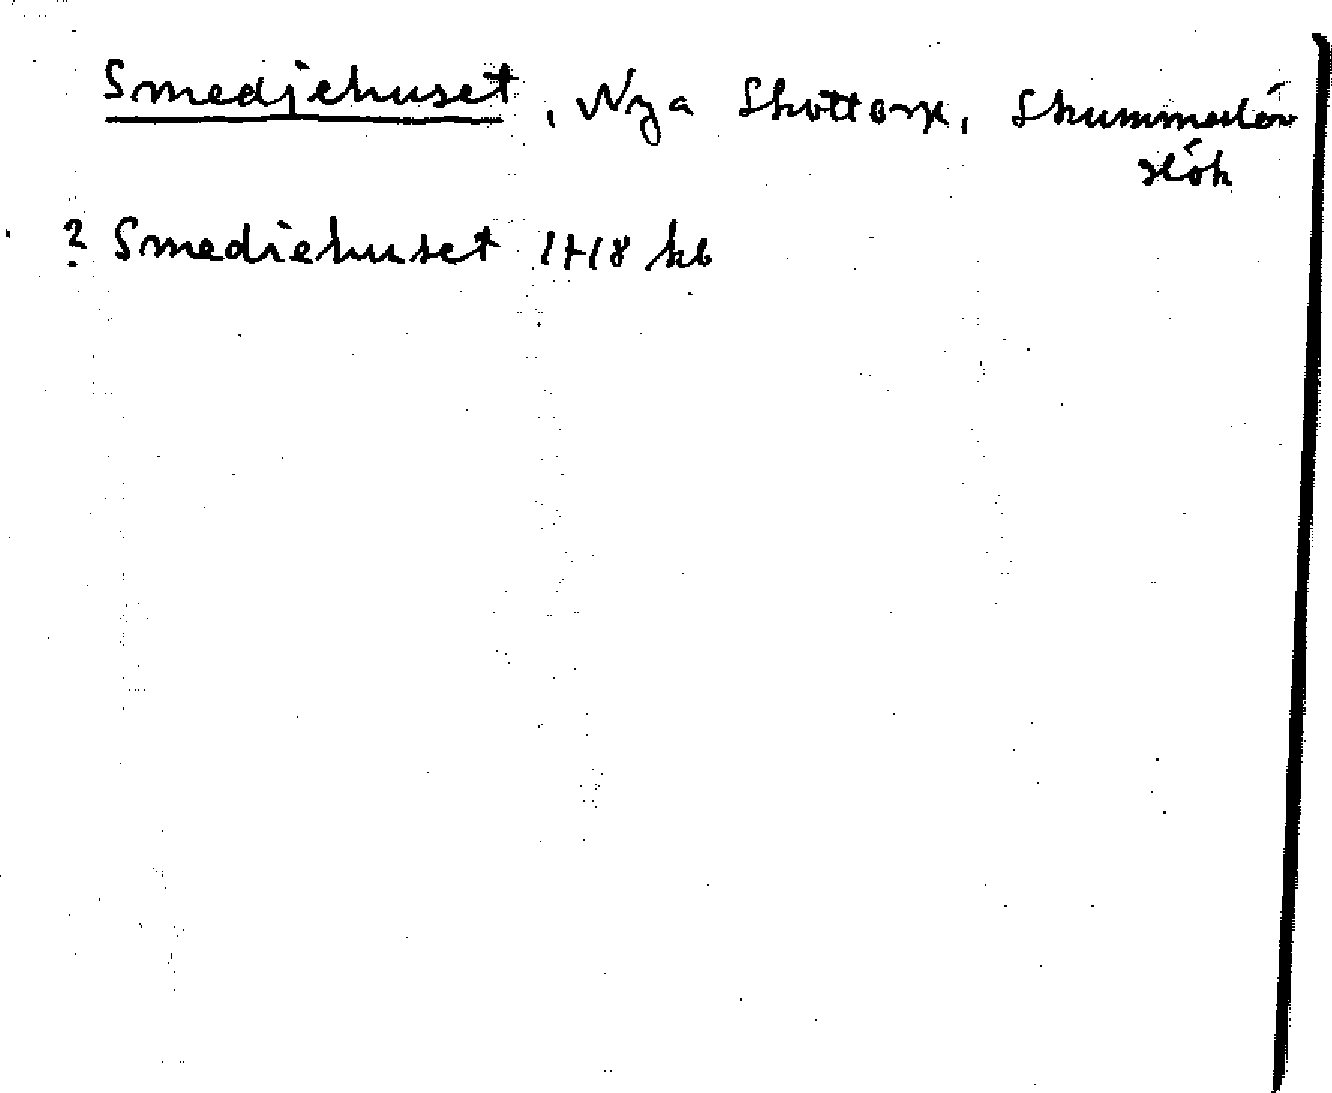 Smedjehuset, Nya Skottorp, Skummeslöv
slöh
? Smediehuset 1718 kb